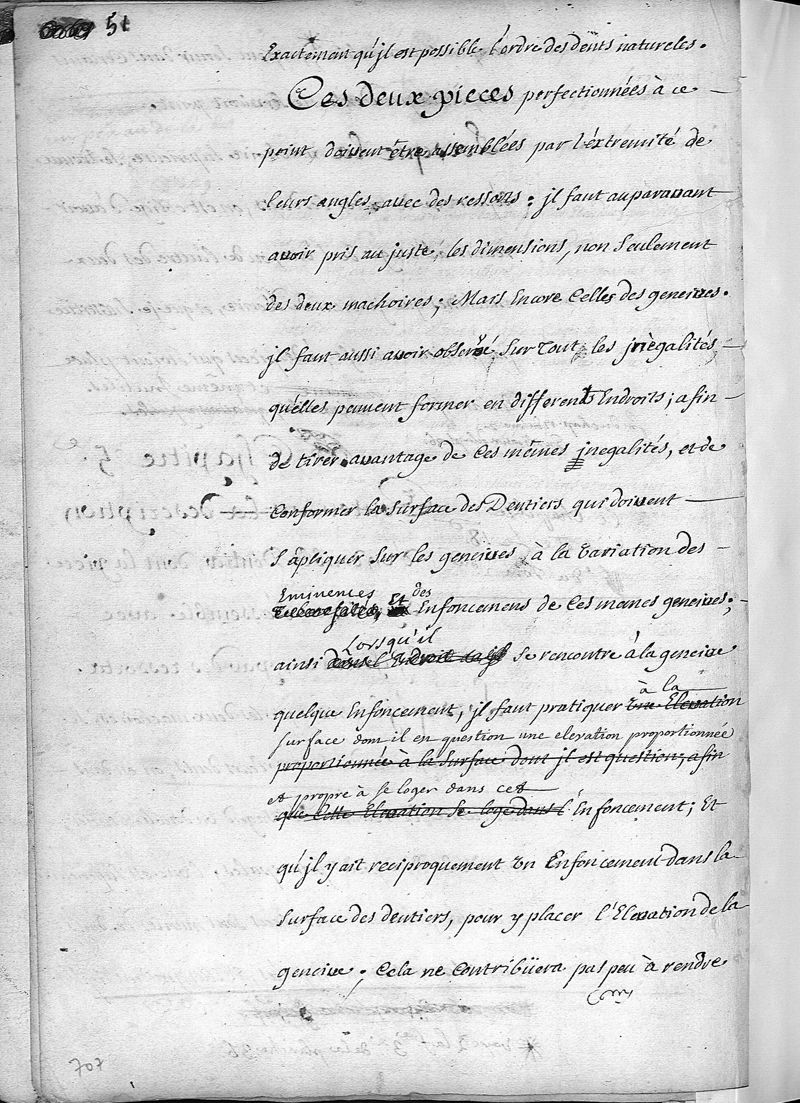 51
Exactement qu'jl est possible l'ordre des dents natureles.
Ces deux pieces perfectionnées à ce
point doivent être assemblées par l'éxtremité de
leurs angles avec des ressorts : jl faut auparavant
avoir pris au juste les dimensions, non seulement
des deux machoires ; Mais Encore Celles des gencives.
jl faut aussi avoir observé sur tout les jnégalités,
qu'elles peuvent former en differents Endroits ; afin
de tirer avantage de Ces mêmes jnegalités, et de
Conformer la surface des Dentiers qui doivent
s'apliquer sur les gencives à la variation des
Eminences Et des
Enfoncemens de Ces memes gencives ;
Lorsqu'il
ainsi se rencontre à la gencive
à la
quelque Enfoncement, jl faut pratiquer une Elevation
surface dont il en question une elevation proportionnée
proportionnée à la surface dont jl est question, afin
et propre à se loger dans cet
que Cette Elevation se loge dans l'Enfoncement ; Et
qu'jl y ait reciproquement un Enfoncement dans la
surface des dentiers, pour y placer l'Elevation de la
gencive ; Cela ne Contribüera pas peu à rendre
707